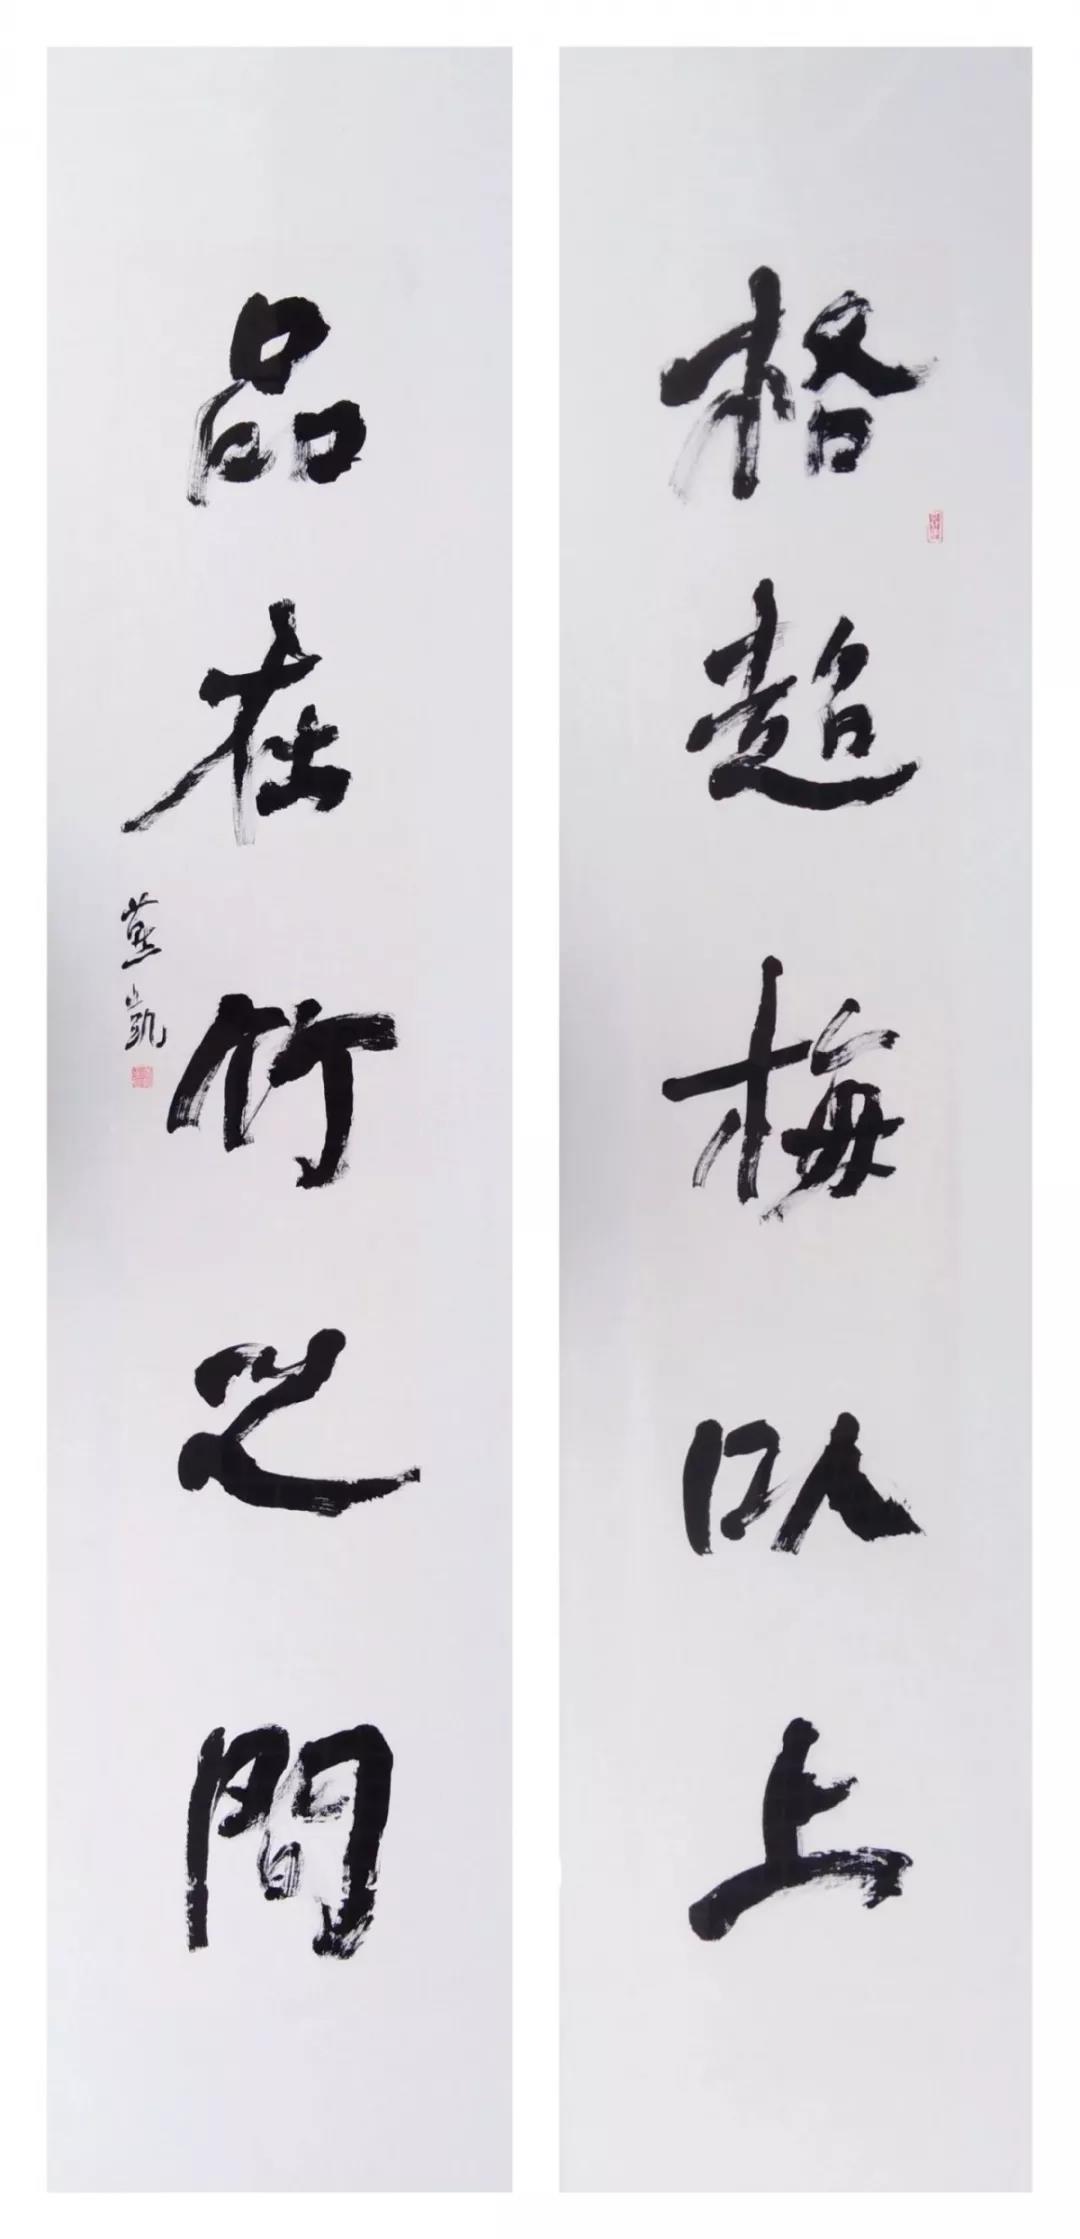 格超梅以上
品在竹之間
燕凱